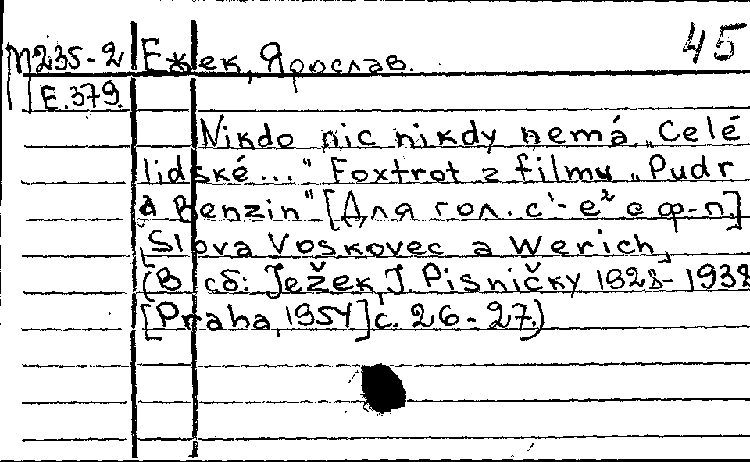 45
М235-2 Ежек, Ярослав.
Е.379.
Nikdo nic nikdy nemá „Celé
lidské..." Foxtrot z filmu „Pudr
a Benzin" [Для гол. c¹-e² с ф-п.]
Slova Voskovec a Werich,
(В сб: Ježek, J. Pisničky 1928-1938
[Praha, 1954] с. 26-27.)